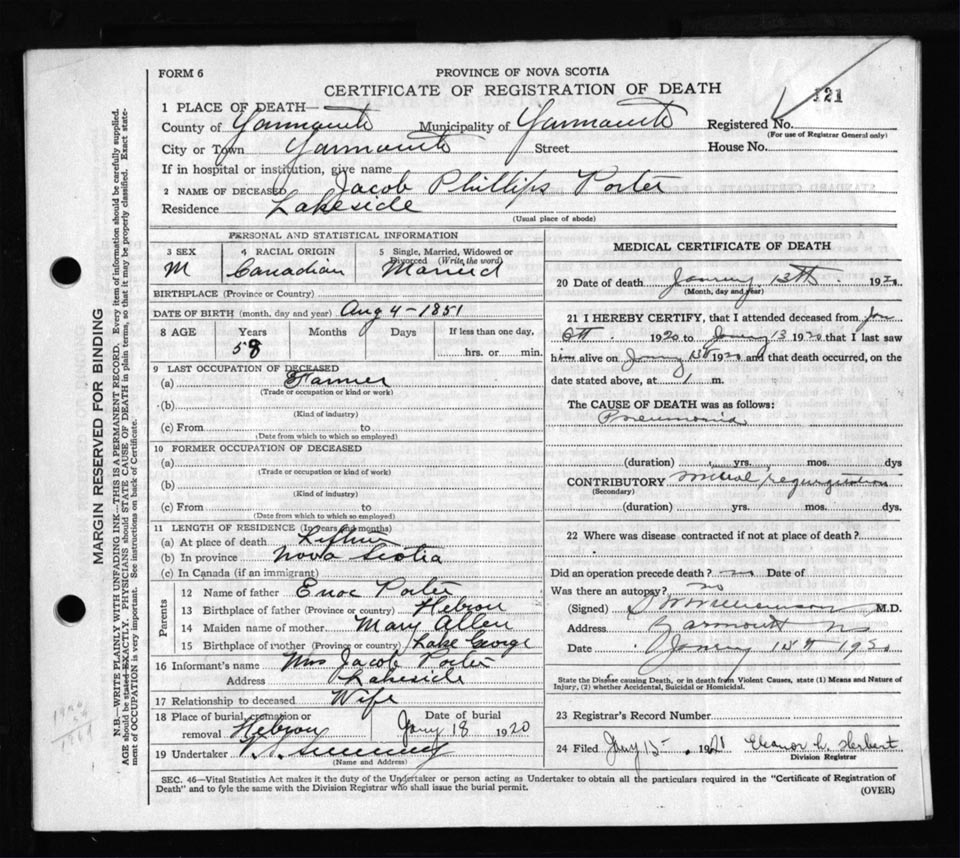 FORM 6
PROVINCE OF NOVA SCOTIA
CERTIFICATE OF REGISTRATION OF DEATH
121
1 PLACE OF DEATH
County of Yarmouth Municipality of Yarmouth Registered No.
(For use of Registrar General only)
City or Town Yarmouth Street House No.
If in hospital or institution, give name
2 NAME OF DECEASED Jacob Phillips Porter
Residence Lakeside
(Usual place of abode)
PERSONAL AND STATISTICAL INFORMATION
3 SEX 4 RACIAL ORIGIN 5 Single, Married, Widowed or Divorced (Write the word)
M Canadian Married
BIRTHPLACE (Province or Country)
DATE OF BIRTH (month, day and year) Aug 4 - 1851
8 AGE Years Months Days If less than one day,
58 hrs. or min.
9 LAST OCCUPATION OF DECEASED
(a) Farmer
(Trade or occupation or kind or work)
(b)
(Kind of industry)
(c) From to
(Date from which to which so employed)
10 FORMER OCCUPATION OF DECEASED
(a)
(Trade or occupation or kind of work)
(b)
(Kind of industry)
(c) From to
(Date from which to which so employed)
11 LENGTH OF RESIDENCE (In years and months)
(a) At place of death Lifetime
(b) In province Nova Scotia
(c) In Canada (if an immigrant)
Parents
12 Name of father Enoc Porter
13 Birthplace of father (Province or country) Hebron
14 Maiden name of mother Mary Allen
15 Birthplace of mother (Province or country) Lake George
16 Informant's name Mrs Jacob Porter
Address Lakeside
17 Relationship to deceased Wife
18 Place of burial, cremation or removal Hebron Date of burial Jany 18 1920
19 Undertaker
(Name and Address)
MEDICAL CERTIFICATE OF DEATH
20 Date of death January 13th 1920
(Month, day and year)
21 I HEREBY CERTIFY, that I attended deceased from Jan
6th 1920 to Jany 13 1920 that I last saw
him alive on Jany 13th 1920 and that death occurred, on the
date stated above, at 1 m.
The CAUSE OF DEATH was as follows:
Pneumonia
(duration) yrs. mos. dys
CONTRIBUTORY mitral regurgitation
(Secondary)
(duration) yrs. mos. dys.
22 Where was disease contracted if not at place of death?
Did an operation precede death? no Date of
Was there an autopsy? no
(Signed) M.D.
Address Yarmouth NS
Date January 15th 1920
State the Disease causing Death, or in death from Violent Causes, state (1) Means and Nature of
Injury, (2) whether Accidental, Suicidal or Homicidal.
23 Registrar's Record Number
24 Filed Jany 15 1921 Eleanor L. Herbert
Division Registrar
SEC. 46—Vital Statistics Act makes it the duty of the Undertaker or person acting as Undertaker to obtain all the particulars required in the "Certificate of Registration of
Death" and to fyle the same with the Division Registrar who shall issue the burial permit.
(OVER)
MARGIN RESERVED FOR BINDING
N.B.—WRITE PLAINLY WITH UNFADING INK—THIS IS A PERMANENT RECORD. Every item of information should be carefully supplied.
AGE should be stated EXACTLY. PHYSICIANS should STATE CAUSE OF DEATH in plain terms, so that it may be properly classified. Exact statement of OCCUPATION is very important. See instructions on back of Certificate.